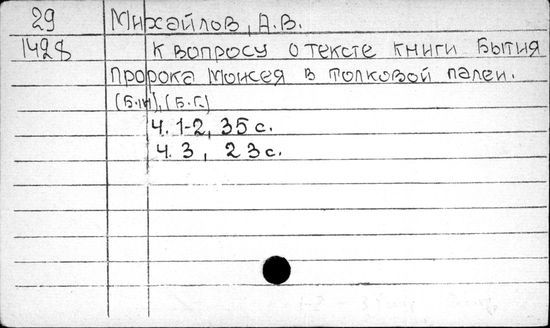 29 Михайлов, А.В.
1428 К вопросу о тексте книги Бытия
пророка Моисея в Толковой палеи.
(Б.м), (Б.Г.)
Ч. 1-2, 35 с.
Ч. 3, 23 с.